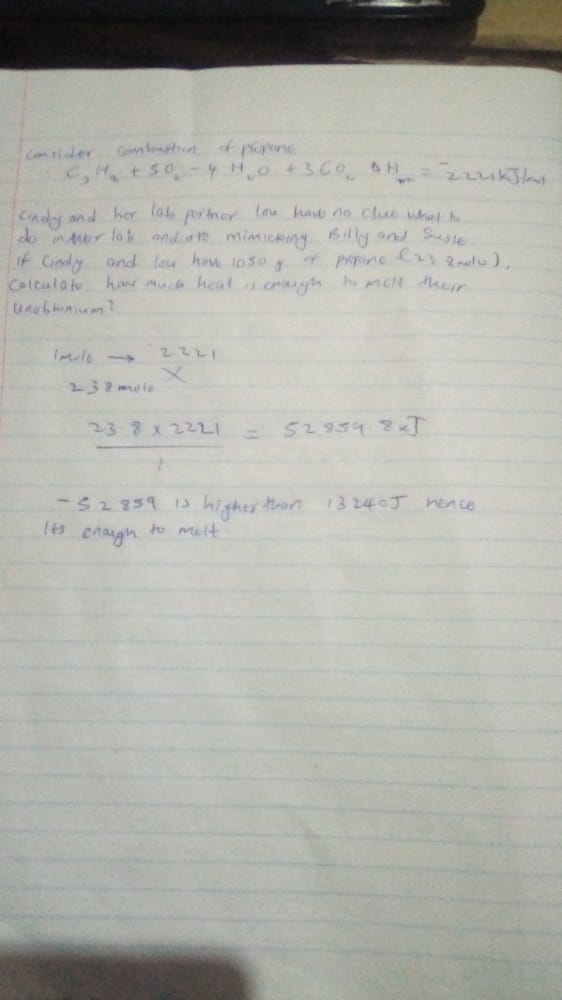 consider combustion of propane
: C3 H8 + 5O2 - 4 H2O + 3CO2 ΔH = -2221KJ/mol
Cindy and her lab partner Lou have no clue what to
do in their lab and are mimicking Billy and Susie
if Cindy and Lou have 1050 g of propane (23.8mole).
Calculate how much heat is enough to melt their
unobtainium?
1mole → 2221
23.8 mole X
23.8 x 2221 = 52859.8KJ
1
-52859 is higher than 13240J hence
Its enough to melt.